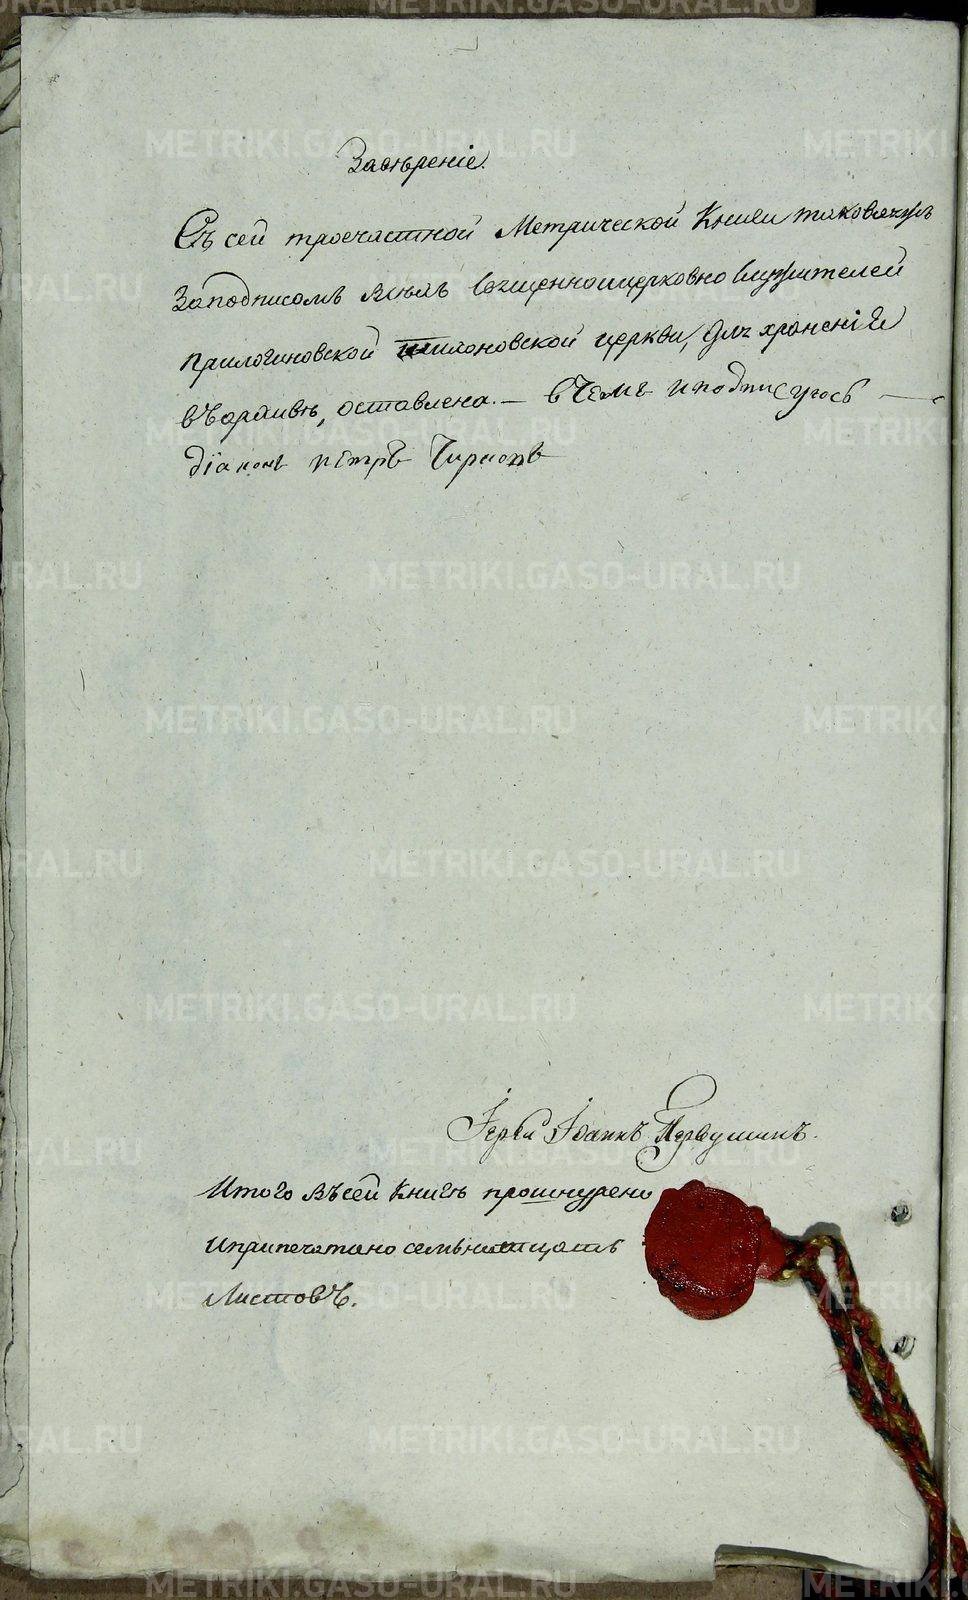 Завѣренiе.
Съ сей троечастной Метрической Книги таковаяжъ
Заподписомъ всѣхъ Священноицерковно Служителей
прилогиновской церкви, для храненiя
въархивѣ, оставлена. – въ Чемъ иподписуюсь
дiаконъ пѣтръ
Iерей Iоаннъ Первушинъ.
Итого въсей Книгѣ прошнурено
иприпечатано семьнатцать
Листовъ.
METRIKI.GASO-URAL.RU